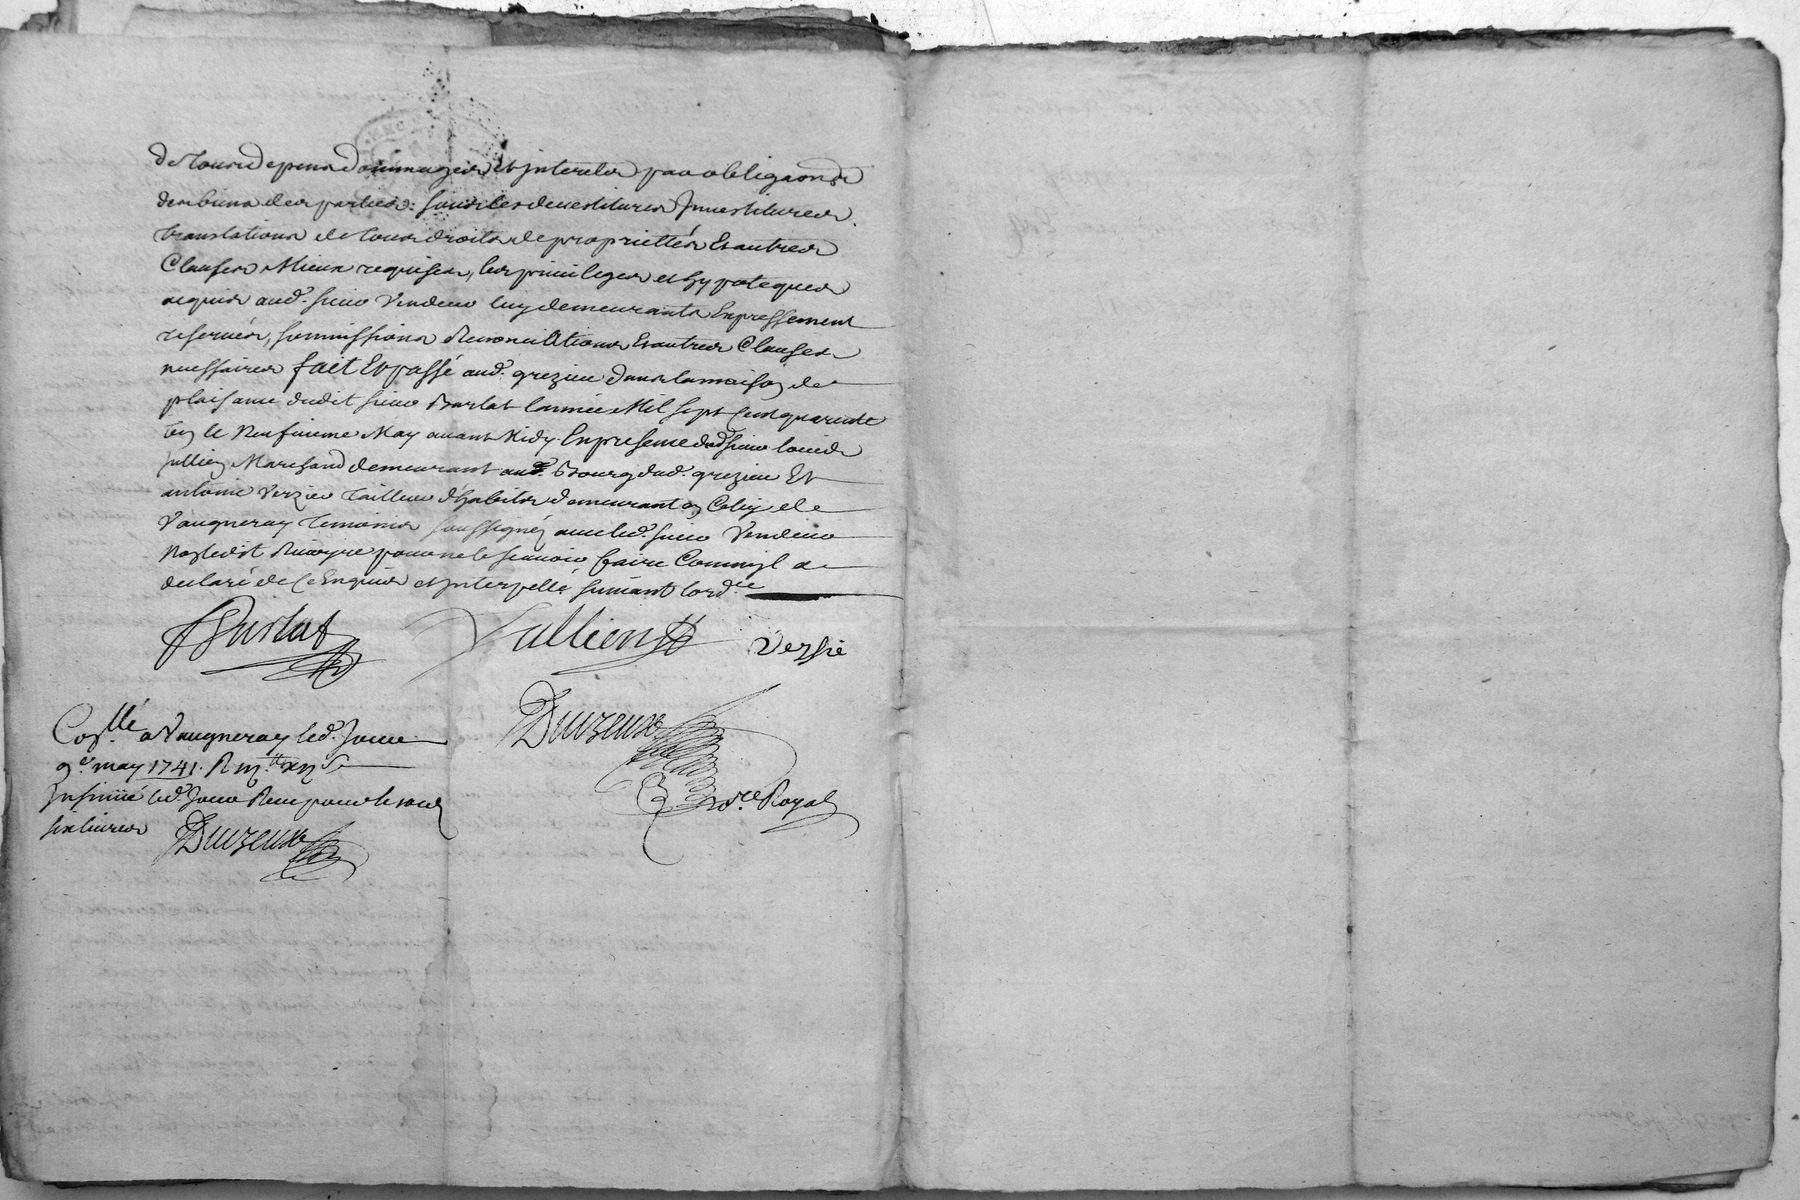 de tous depens dommages et interets par obligaon de
des biens des parties: sous les devestitures Investitures
translations de tous droits de proprietés Et autres
Clauses Mieux requises, les privileges et hypoteques
acquis aud. sieur Vendeur luy demeurants Expressement
reservés, soumissions Renonciations Et autres Clauses
necessaires fait Et passé aud. grezieu dans la maison de
plaisance dudit sieur Burlat L'année Mil sept Cent quarante
un le Neufvieme May avant Midy. En presence dud. sieur Louis
Jullien Marchand demeurant aud. Bourg dud. grezieu Et
antoine Verzieu Tailleur d'habits demeurant en Celuy de
Vaugneray temoins soussignés avec led. sieur Vendeur
Non ledit pour ne le scavoir faire Comm'il a
declaré de Ce Enquis et Interpellé suivant l'ord.ce
Burlat Jullien Verzié
Con.llé a Vaugneray led. Jour
9e may 1741. R
Insinüé led. Jour Reçu pour le tout
six livres
Duvzeux
Duvzeux
No.re Royal